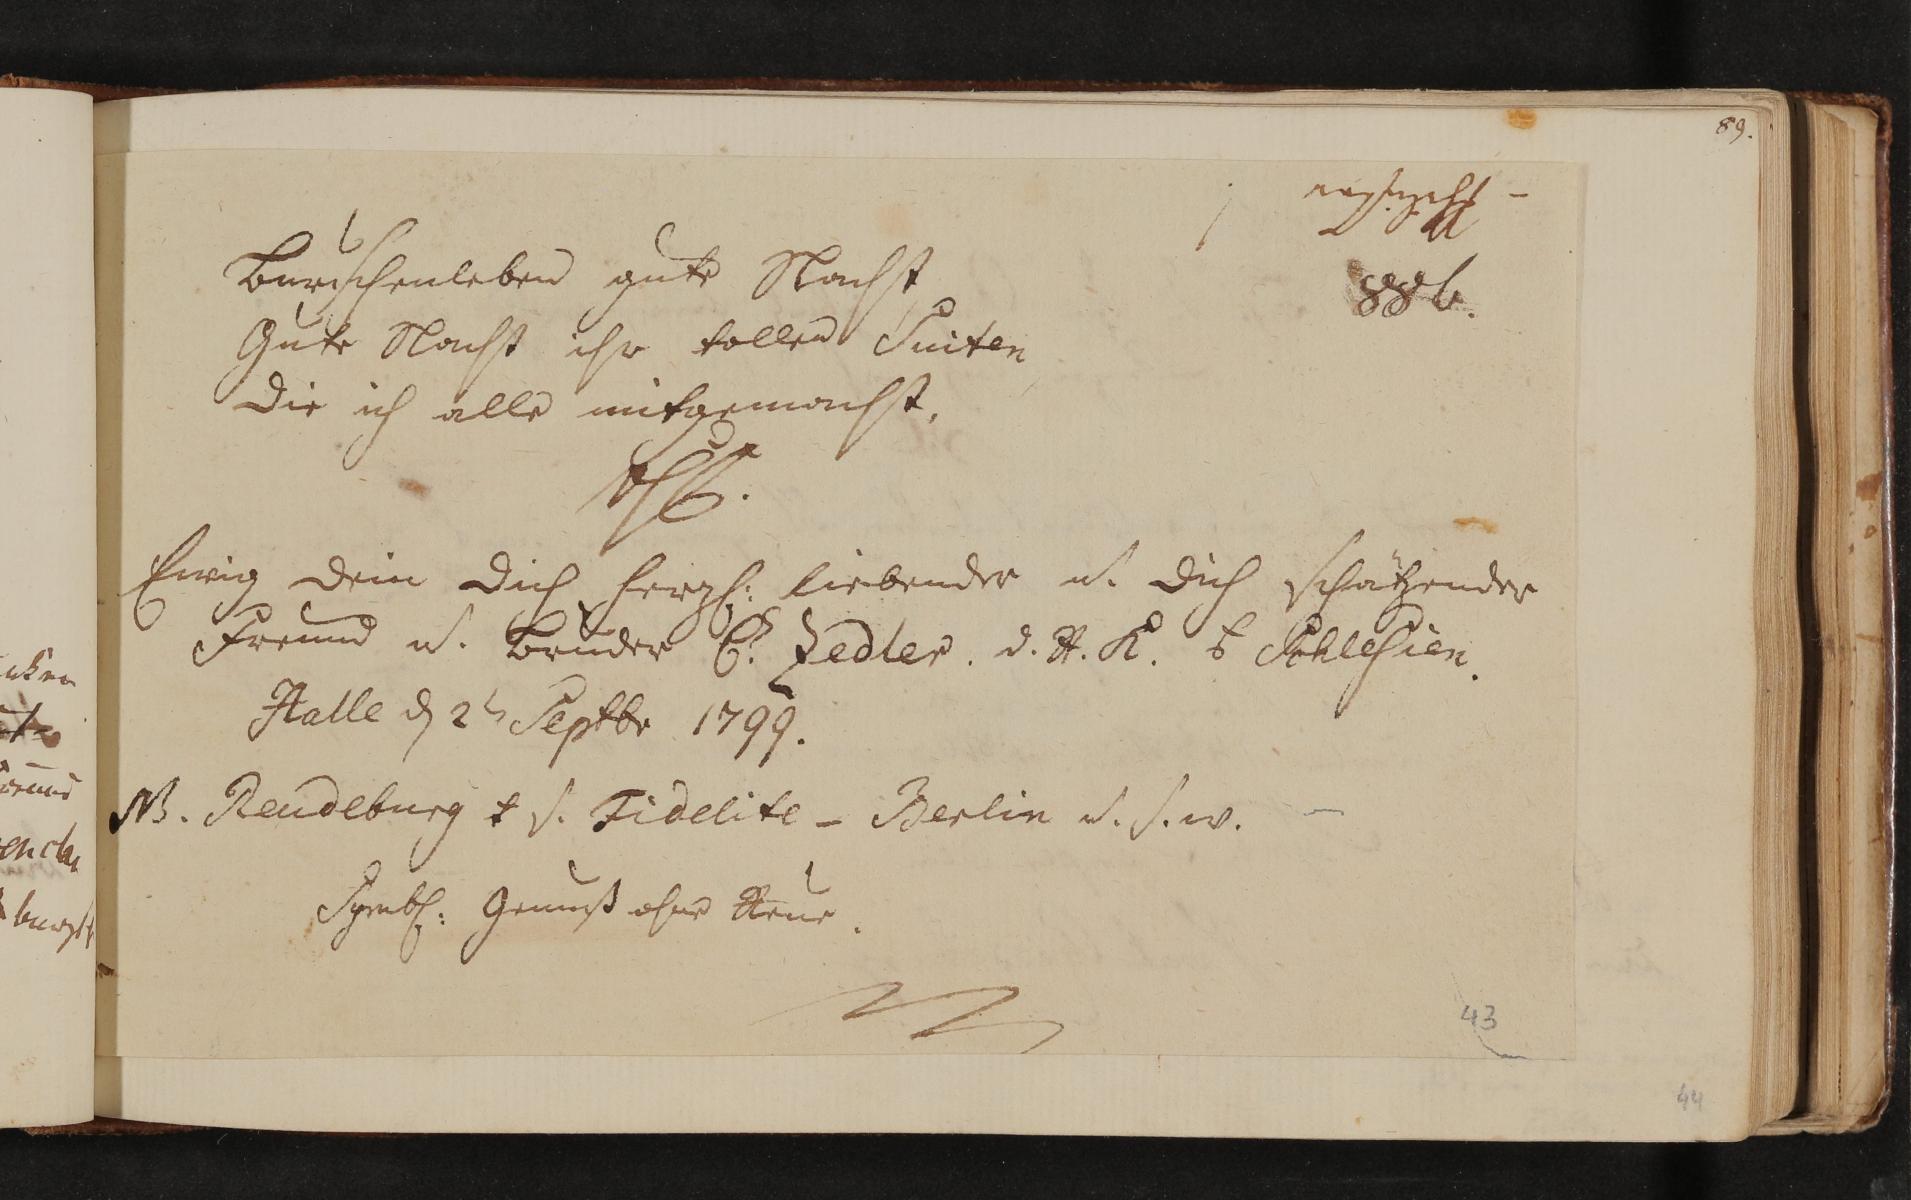 89.
88b.
Burschenleben gute Nacht
Gute Nacht ihr tollen Suiten
Die ich alle mitgemacht.
Ewig dein Dich herzl: liebender u. Dich schätzender
Freund u. Bruder C. Zedler. d. R. K. b Schlesien.
Halle d 2t Septbr 1799.
NB. Reudeburg s. Fidelite – Berlin u. s. w.
Symbl: Genuß ohne Reue.
43
44